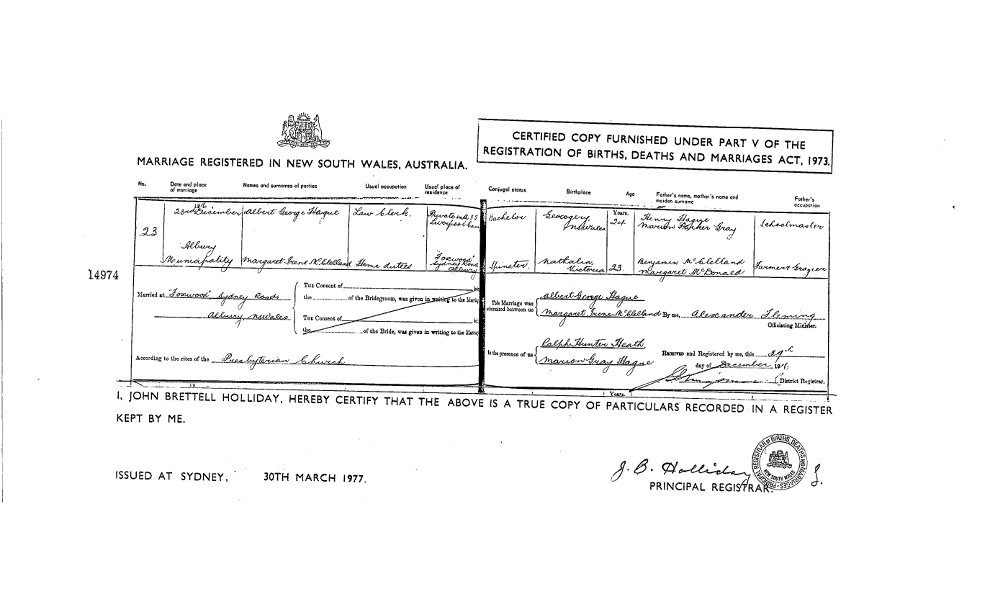 CERTIFIED COPY FURNISHED UNDER PART V OF THE
REGISTRATION OF BIRTHS, DEATHS AND MARRIAGES ACT, 1973.
MARRIAGE REGISTERED IN NEW SOUTH WALES, AUSTRALIA.
No. Date and place of marriage Names and surnames of parties Usual occupation Usual place of residence Conjugal status Birthplace Age Father's name, mother's name and maiden surname Father's occupation
23rd December Albert George Hague Law Clerk. Bachelor Years. 24 Henry Hague Schoolmaster
Gray
23
Albury
Municipality Margaret Irene McClelland Home duties "Foxwood" Sydney Road Albury Spinster Nathalia Victoria 23 Benjamin McClelland Margaret McDonald Farmer Grazier
14974
Married at "Foxwood" Sydney Road
Albury
THE Consent of
the of the Bridegroom, was given in writing to the
THE Consent of
the of the Bride, was given in writing to the
According to the rites of the Presbyterian Church
This Marriage was between us
Albert George Hague
Margaret Irene McClelland By me, Alexander Fleming
Officiating Minister.
In the presence of us
Ralph Hunter Heath
Marion Gray Hague
RECEIVED and Registered by me, this
day of December
District Registrar.
Years.
I, JOHN BRETTELL HOLLIDAY, HEREBY CERTIFY THAT THE ABOVE IS A TRUE COPY OF PARTICULARS RECORDED IN A REGISTER
KEPT BY ME.
ISSUED AT SYDNEY, 30TH MARCH 1977.
J. B. Holliday
PRINCIPAL REGISTRAR.